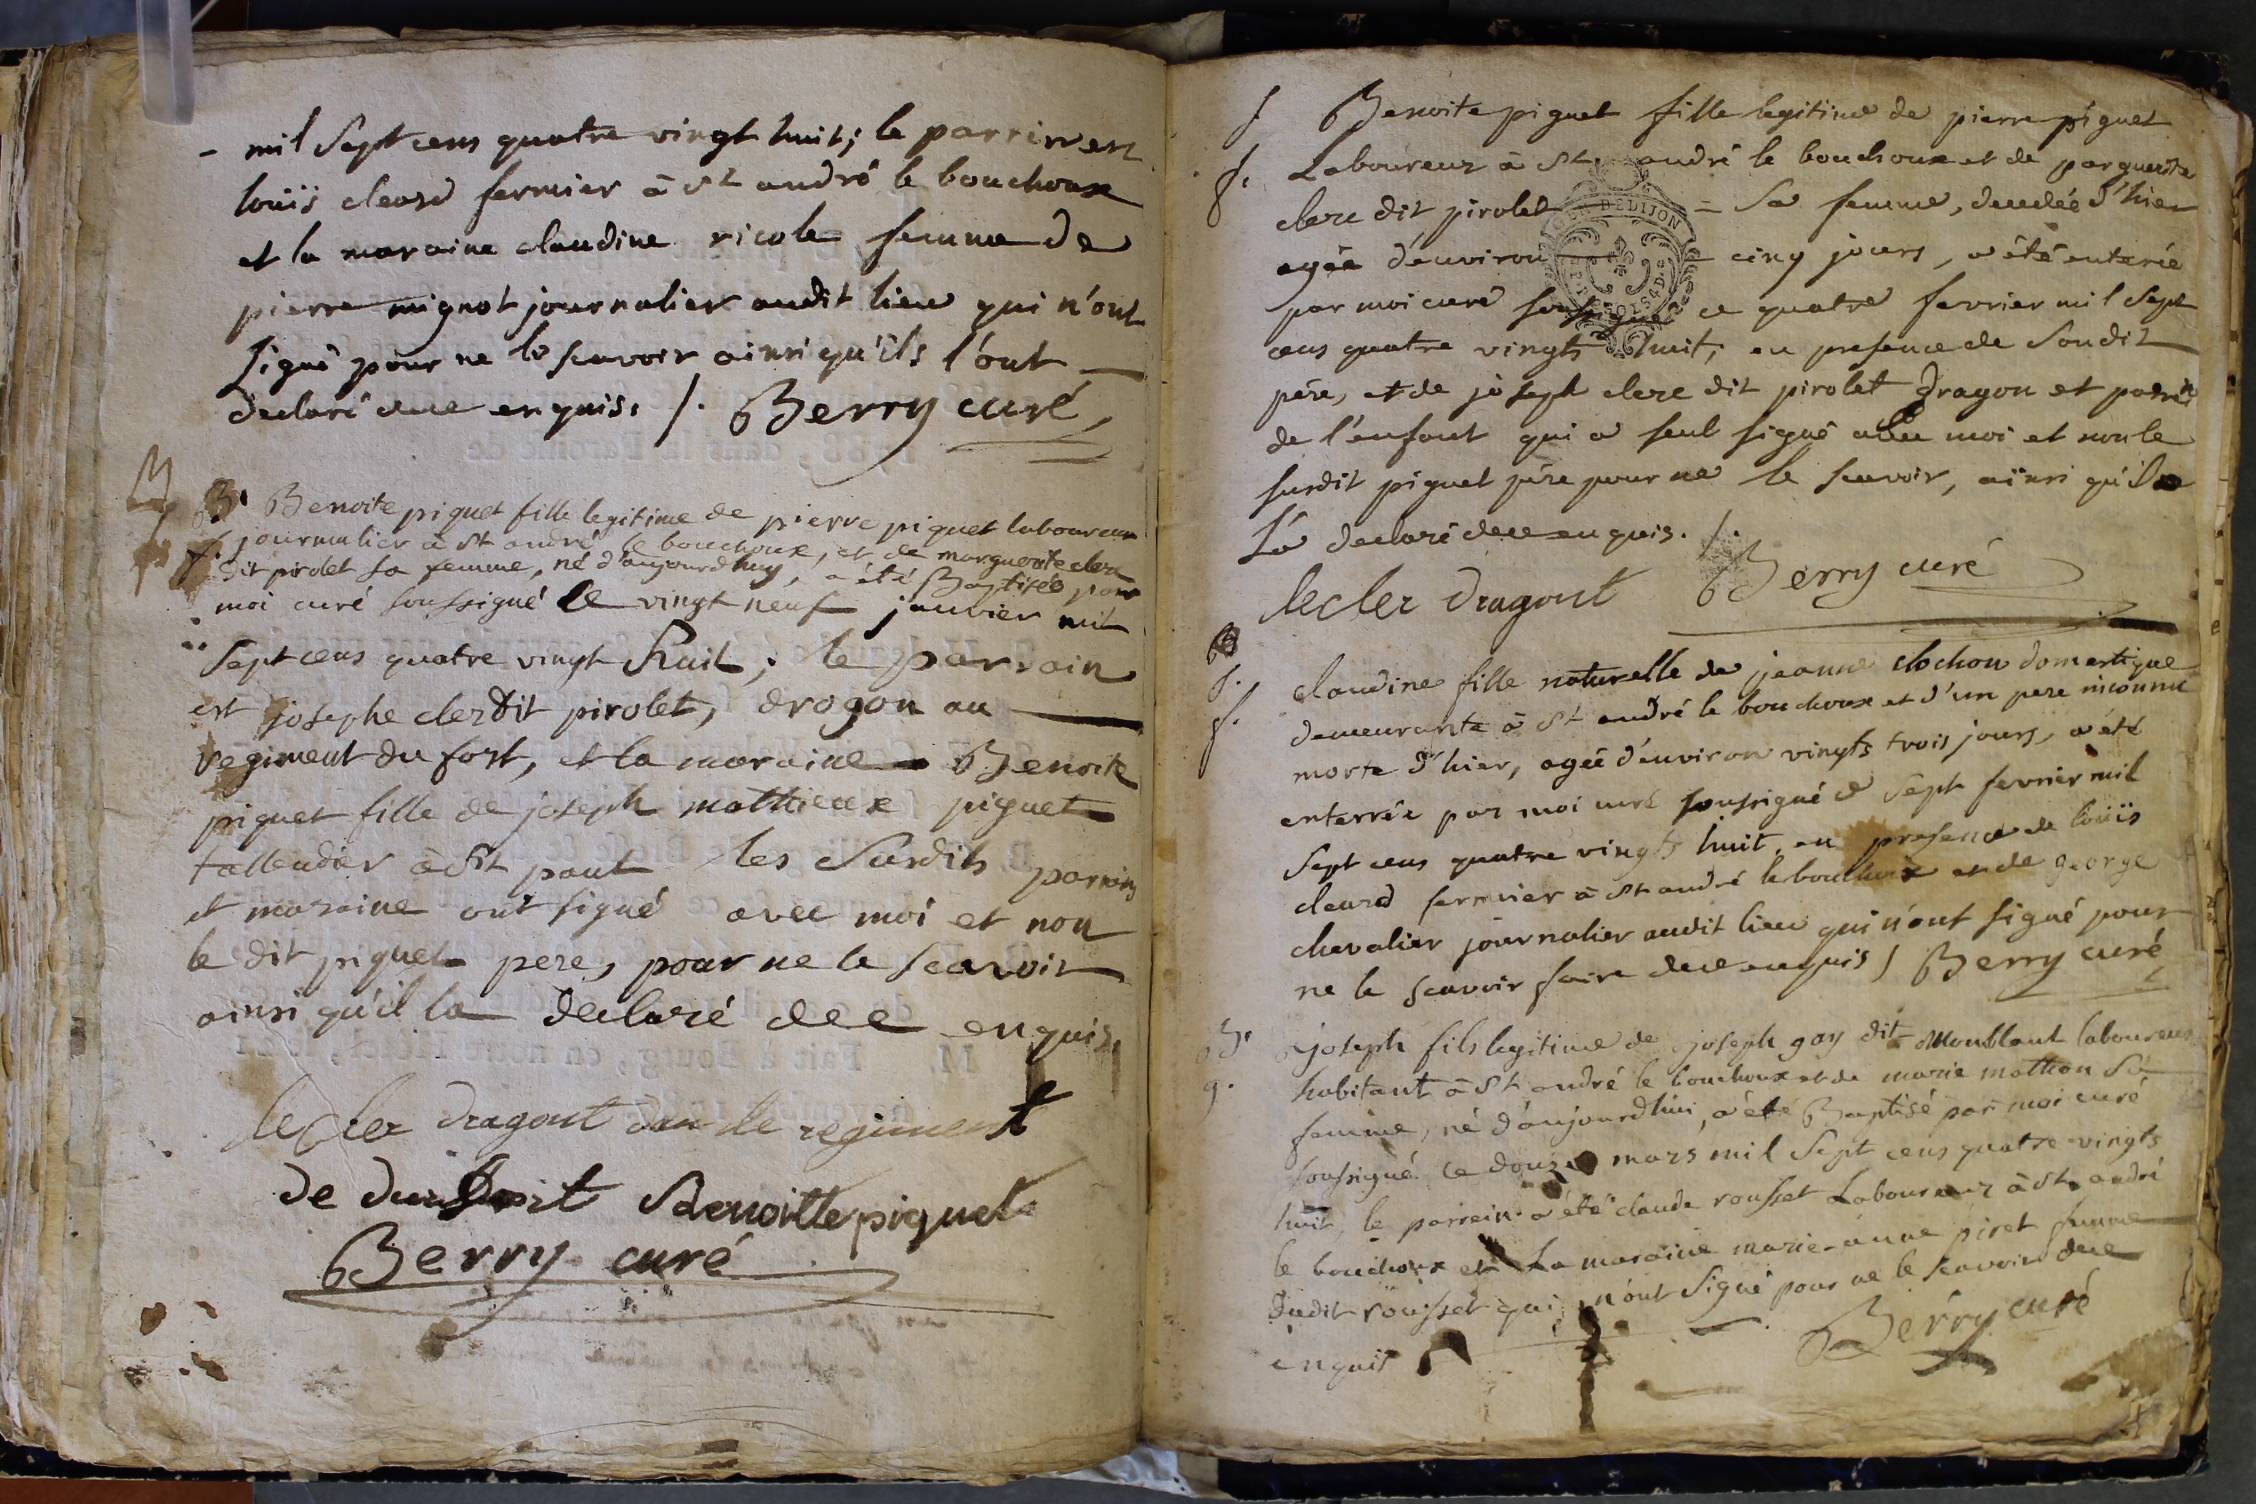 - mil Sept cens quatre vingt huit; le parrin est
loüis cleard fermier à St andré le bouchoux
et la maraine claudine ricole femme de
pierre mignot journalier audit lieu qui n'ont
signé pour ne le scavoir ainsi qu'ils l'ont
declaré de ce enquis. /. Berry curé
B. Benoite piguet fille legitime de pierre piguet laboureur
f. journalier à St andré le bouchoux, et de marguerite clerc
dit pirolet sa femme, né d'aujourd huy, a été Baptisée par
moi curé soussigné le vingt neuf janvier mil
Sept cens quatre vingt huit; le parrain
est josephe clerc dit pirolet, dragon au
regiment du fort, et la maraine Benoite
piguet fille de joseph mathieux piguet
à St paul les Susdits parrain
et maraine ont signé avec moi et non
le dit piguet pere, pour ne le scavoir
ainsi qu'il la declaré de ce enquis.
lecler dragont dan le regiment
de Benoitte piguet
Berry curé
f Benoite piguet fille legitime de pierre piguet
f. Laboureur à St andré le bouchoux et de marguerite
clerc dit pirolet = sa femme, decedée d'hier
agée d'environ = cinq jours, a été enterée
par moi curé soussigné ce quatre fevrier mil sept
cens quatre vingts huit, en presence de Son dit
père, et de joseph clerc dit pirolet dragon et parrein
de l'enfant qui a seul signé avec moi et non le
susdit piguet père pour ne le scavoir, ainsi qu'il
L'a declaré de ce enquis. /.
lecler dragont Berry curé
f. claudine fille naturelle de jeanne clochon domestique
f. demeurante à St andré le bouchoux et d'un pere inconnu
morte d'hier, agée d'environ vingts trois jours, a été
enterrée par moi curé soussigné ce sept fevrier mil
Sept cens quatre vingts huit, en presence de loüis
cleard fermier à St andré le bouchoux et de george
chevalier journalier audit lieu qui n'ont signé pour
ne le scavoir faire de ce enquis / Berry curé
B. joseph fils legitime de joseph gay dit Monblant laboureur
g. habitant à St andré le bouchoux et de marie mathon Sa
femme, né d'aujourdhui, a été Baptisé par moi curé
soussigné ce douze mars mil Sept cens quatre-vingts
huit, le parrein a été claude rousset Laboureur à St. andré
le bouchoux et La maraine marie-anne piret femme
dudit rousset qui n'ont Signé pour ne le scavoir de ce
enquis Berry curé